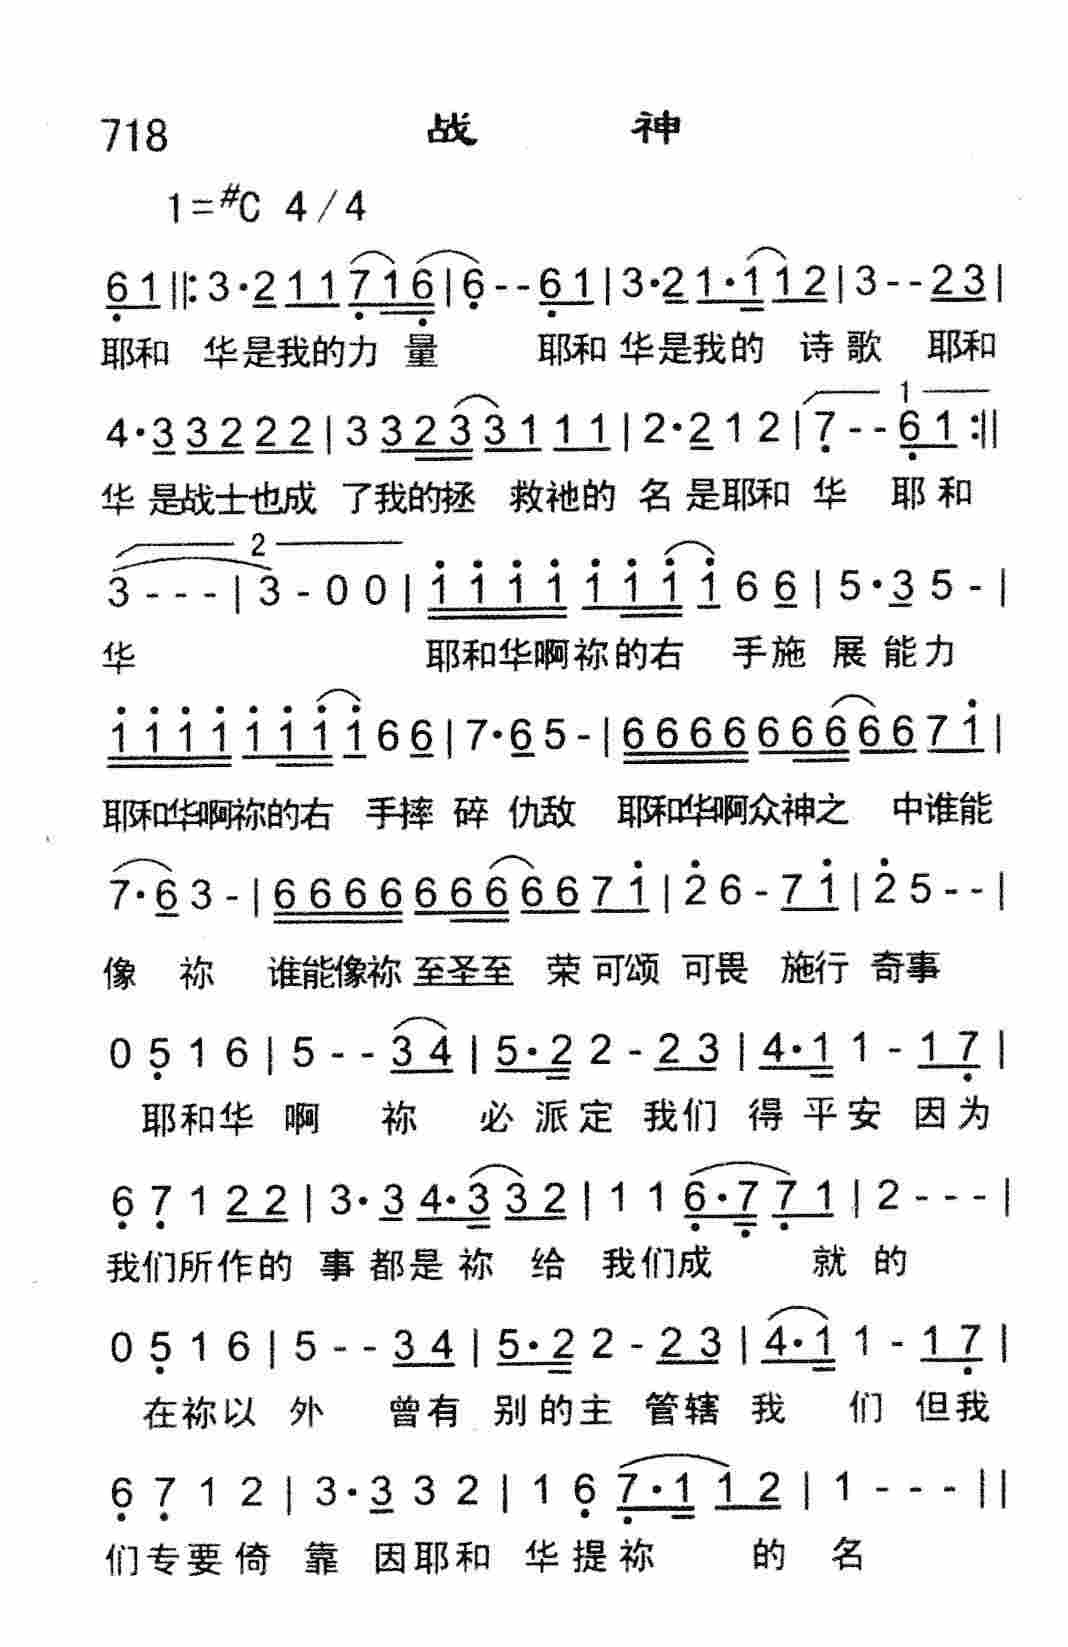 718 战 神
1=#C 4/4
6 1 ‖: 3·2 1 1 7 1 6 | 6 - - 6 1 | 3·2 1·1 1 2 | 3 - - 2 3 |
耶和 华是我的力 量 耶和 华是我的 诗歌 耶和
1
4·3 3 2 2 2 | 3 3 2 3 3 1 1 1 | 2·2 1 2 | 7 - - 6 1 :‖
华 是战士也成 了我的拯 救祂的 名 是耶和 华 耶 和
2
3 - - - | 3 - 0 0 | 1 1 1 1 1 1 1 1 6 6 | 5·3 5 - |
华 耶和华啊祢的右 手施 展 能力
1 1 1 1 1 1 1 1 6 6 | 7·6 5 - | 6 6 6 6 6 6 6 6 6 7 1 |
耶和华啊祢的右 手摔 碎 仇敌 耶和华啊众神之 中谁能
7·6 3 - | 6 6 6 6 6 6 6 6 6 7 1 | 2 6 - 7 1 | 2 5 - - |
像 祢 谁能像祢 至圣至 荣 可颂 可畏 施行 奇事
0 5 1 6 | 5 - - 3 4 | 5·2 2 - 2 3 | 4·1 1 - 1 7 |
耶和华 啊 祢 必 派定 我们 得 平安 因为
6 7 1 2 2 | 3·3 4·3 3 2 | 1 1 6·7 7 1 | 2 - - - |
我们所作的 事 都是 祢 给 我们成 就 的
0 5 1 6 | 5 - - 3 4 | 5·2 2 - 2 3 | 4·1 1 - 1 7 |
在祢以 外 曾有 别的主 管辖 我 们 但我
6 7 1 2 | 3·3 3 2 | 1 6 7·1 1 2 | 1 - - - ||
们专要倚 靠 因耶和 华提祢 的 名